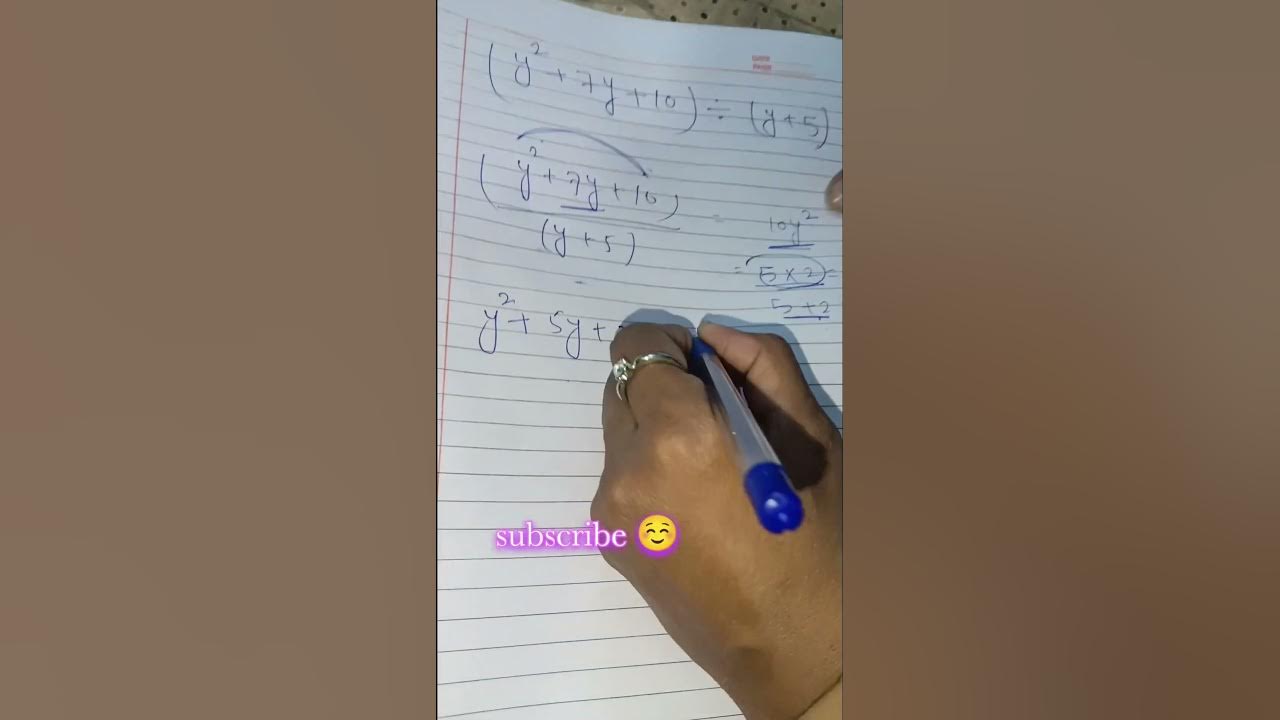 (y² + 7y + 10) ÷ (y + 5)
(y² + 7y + 10)
(y + 5)
=
10y²
= 5 × 2 =
5 + 2
=
y² + 5y +
subscribe ☺️